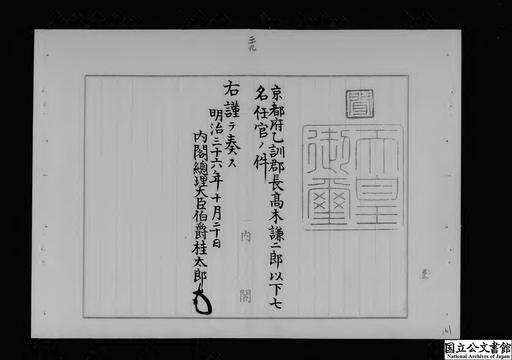 三九
可
天皇御璽
京都府乙訓郡長髙木謙二郎以下七
名任官ノ件
右謹テ奏ス
明治三十六年十月二十日
内閣總理大臣伯爵桂太郎
内閣
国立公文書館
National Archives of Japan